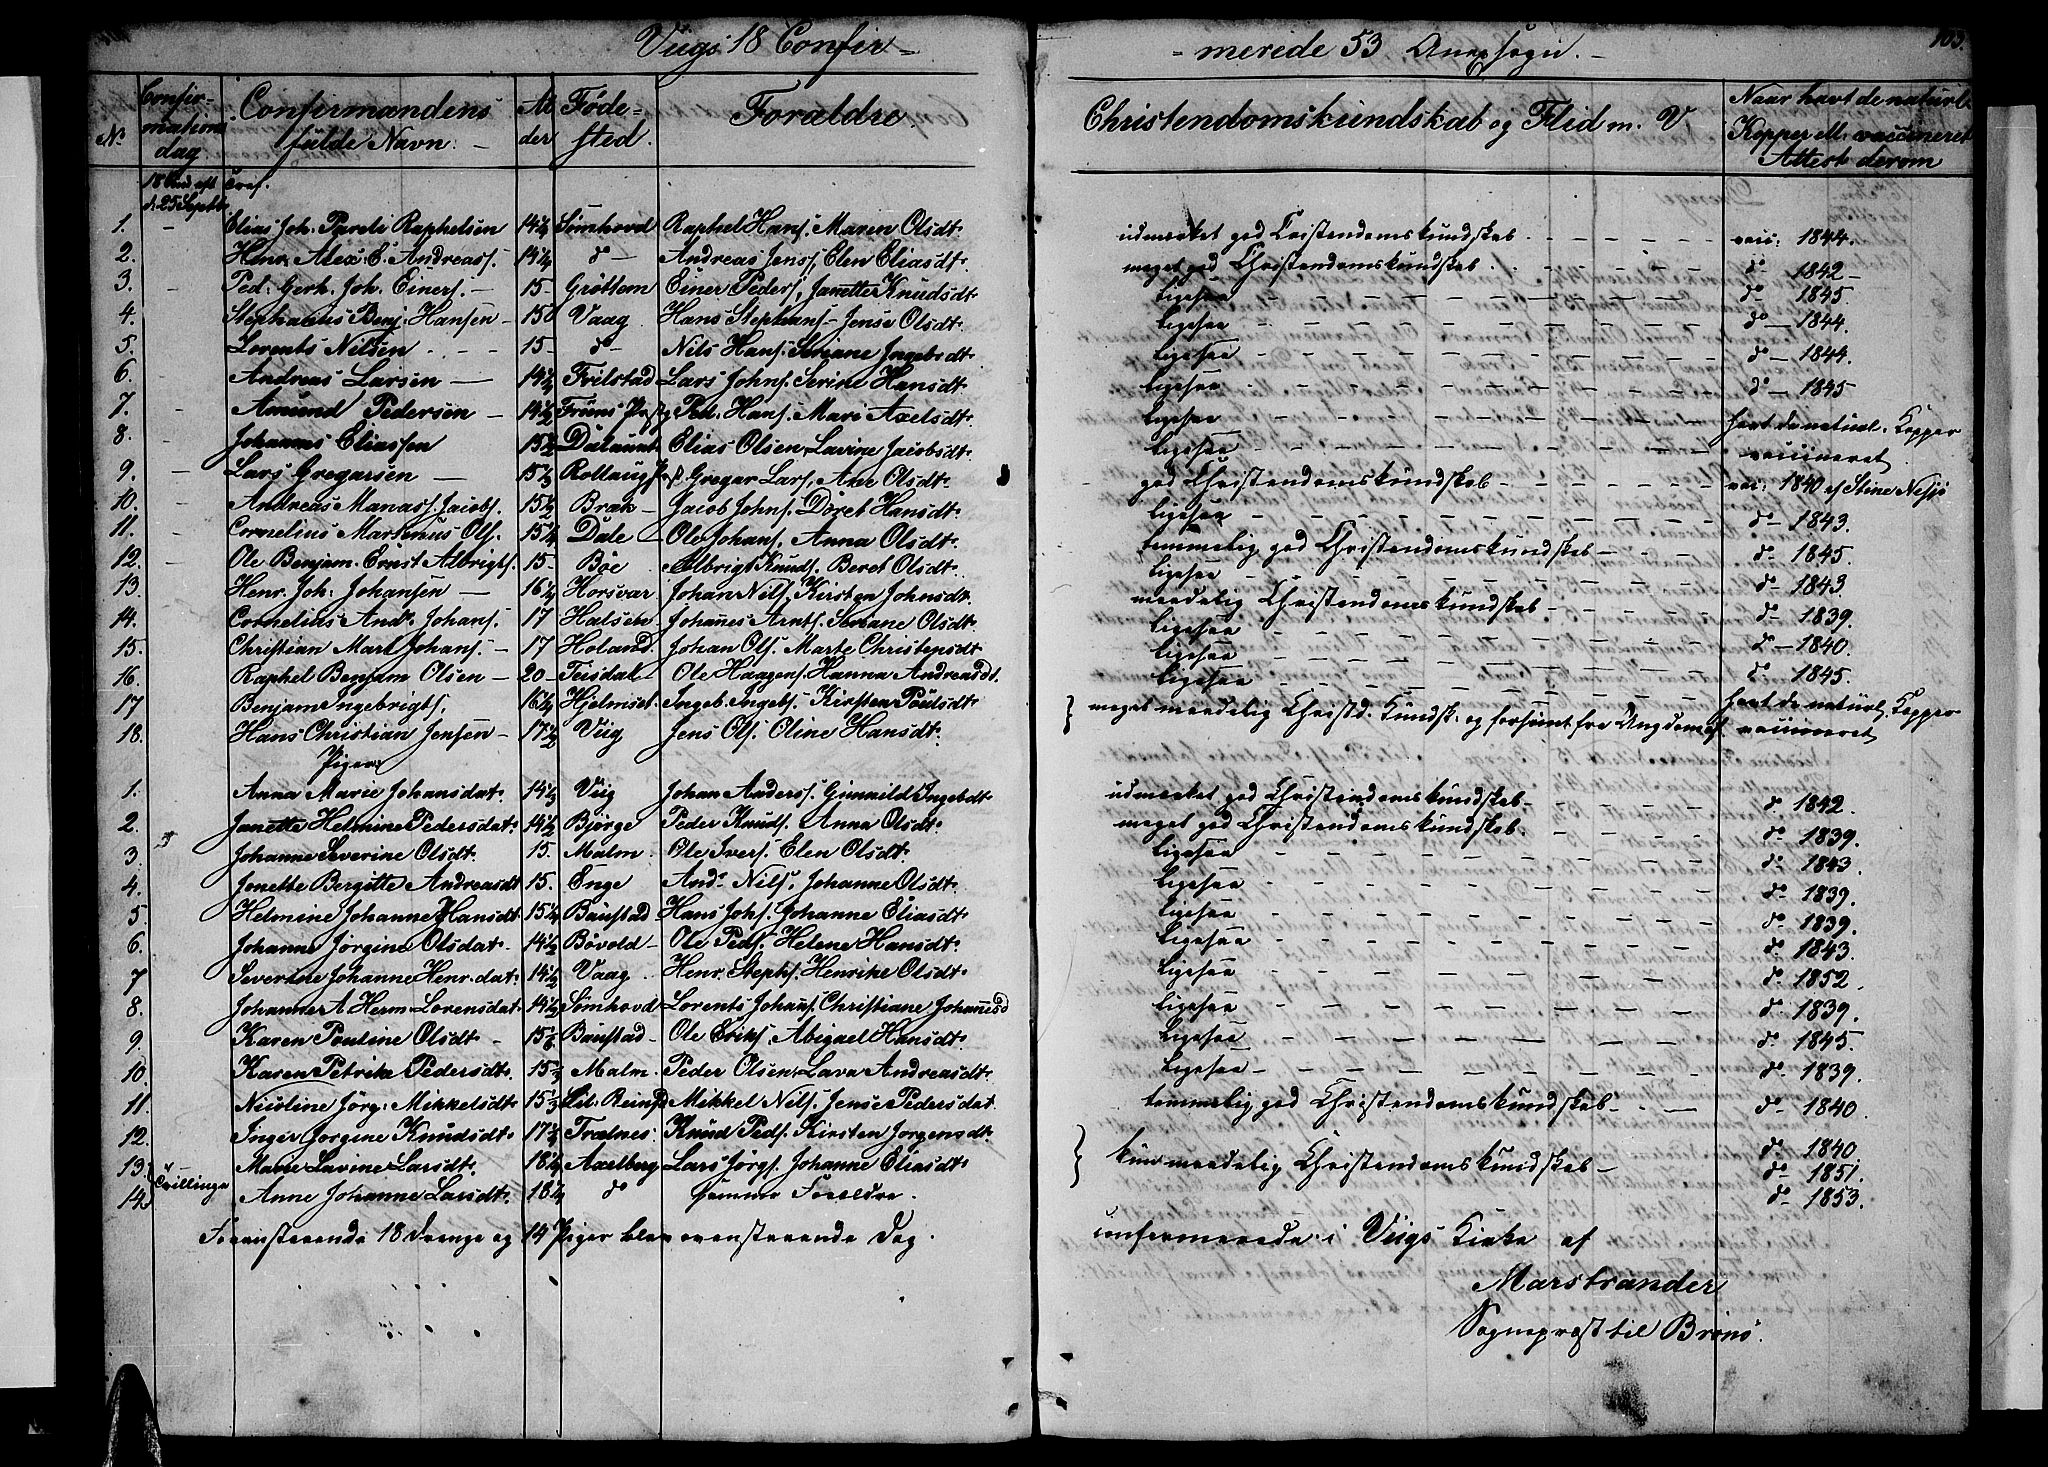 Viigs 18 Confir-
Confir-
mations
dag
No
Confirmandens
fulde Navn.
Al
der
Føde-
sted.
Forældre.
18 Sønd. eft. Tref.
d. 25 Septbr
1. Elias Joh: Parels Raphelsen 14½ Sømhovd Raphel Hans. Maren Olsdt.
2. Henr. Alex. E. Andreass. 14¼ do Andreas Jenss, Elen Eliasdt.
3. Ped: Gerh. Joh. Einers. 15- Grøttem Einer Peders, Janette Knudsdt.
4. Stephanus Benj. Hansen 15 Vaag Hans Stephans Jense Olsdt.
5. Lorents Nilsen 15- do Nils Hans. Seviane Ingeb dt.
6. Andreas Larsen 14½ Frilstad Lars Johns. Serine Hansdt.
7. Amund Pedersen 14½ Ped. Hans. Mari Axelsdt.
8. Johannes Eliassen 15½ Elias Olsen Lavine Jacobsdt.
9. Lars Gregarsen 15½ Gregar Lars, Ane Olsdt.
10. Andreas Manass. Jacobs. 15½ Bræk Jacob Johns. Døret Hansdt.
11. Cornelius Martinus Ols. 15¼ Dale Ole Johans, Anna Olsdt.
12. Ole Benjam. Ernst Albrigts. 15- Bøe Albrigt Knuds. Beret Olsdt.
13. Henr. Joh: Johansen 16½ Horsvær Johan Nils, Kirsten Johnsdt.
14. Cornelius And. Johans. 17 Halsen Johañes Arnts. Seviane Olsdt.
15. Christian Mart Johans. 17 Holand. Johan Ols. Marte Christensdt.
16. Raphel Benjam Olsen 20- Teisdal Ole Haagens, Hanna Andreasdt.
17 Benjam Ingebrigts, 16½ Hjelmset. Ingeb. Ingebs. Kirsten Poulsdt.
18. Hans Christian Jensen 17½ Viig Jens Ols. Oline Hansdt.
Piger
1. Anna Marie Johansdat. 14½ Viig Johan Anders. Gunnild Ingebdt
2. Janette Helmine Pedersdat. 14½ Bjørge Peder Knuds. Anna Olsdt.
3. Johanne Severine Olsdt. 15. Malm. Ole Ivers. Elen Olsdt.
4. Jonette Bergitte Andreasdt 15. Enge And. Nils, Johanne Olsdt.
5 Helmine Johanne Hansdt. 15¼ Baustad Hans Johs. Johanne Eliasdt.
6. Johanne Jørgine Olsdat. 14½ Bøvold Ole Peds. Helene Hansdt.
7 Severine Johanne Henr. dat. 14½ Vaag. Henr. Stephs. Henrike Olsdt.
8. Johanne A Herm Lorensdat. 14½ Sømhovd Lorents Johañs. Christiane Johañesd
9. Karen Pauline Olsdt. Baustad Ole Eriks. Abigael Hansdt.
10. Karen Petrike Pedersdt. Malm. Peder Olsen Lava Andreasdt.
11. Nicoline Jørg: Mikkelsdt. Lil. Reinsf Mikkel Nils. Jense Pedersdat
12. Inger Jorgine Knudsdt. 17½ Trælnes. Knud Peds. Kirsten Jørgensdt.
13. Marie Lavine Larsdt. 18½ Axelberg Lars Jørgs. Johanne Eliasdt.
Tvillinge
14. Anne Johanne Larsdt. 18½ do Samme Forældre.
Foranstaaende 18 Drenge og 14 Piger blev ovenstaaende Dag.
-merede 53 Anexsogn.
103.
Christendomskundskab og Flid m. V
Naar havt de naturl.
Kopper ell. vaccineret
Attest derom
udmærket god Cristendomskundskab vacc: 1844.
meget god Christendomskundskab do 1842
ligesaa do 1845.
ligesaa do 1844.
ligesaa do 1844.
ligesaa do 1845
ligesaa havt de naturl. Kopper
ligesaa vaccineret
god Christendomskundskab vac: 1840 af Stine Nesjø
ligesaa do 1843.
temmelig god Christendomskundskab do 1845.
ligesaa do 1843
maadelig Christendomskundskab do 1839.
ligesaa do 1840.
ligesaa do 1845.
ligesaa
meget maadelig Christd. Kundsk: og forsømt fra Ungdommen havt de naturl. Kopper
vaccineret
udmærket god Christendomskundskab do 1842.
meget god Christendomskundskab. do 1839.
ligesaa do 1843
ligesaa do 1839.
ligesaa do 1839.
ligesaa do 1843.
ligesaa do 1852.
ligesaa do 1839.
ligesaa do 1845.
ligesaa do 1839.
temmelig god Christendomskundskab do 1840.
kun maadelig Christendomskundskab do 1840
do 1851.
do 1853.
confirmerede i Viigs Kirke af
Marstrander
Sognepræst til Brønø.